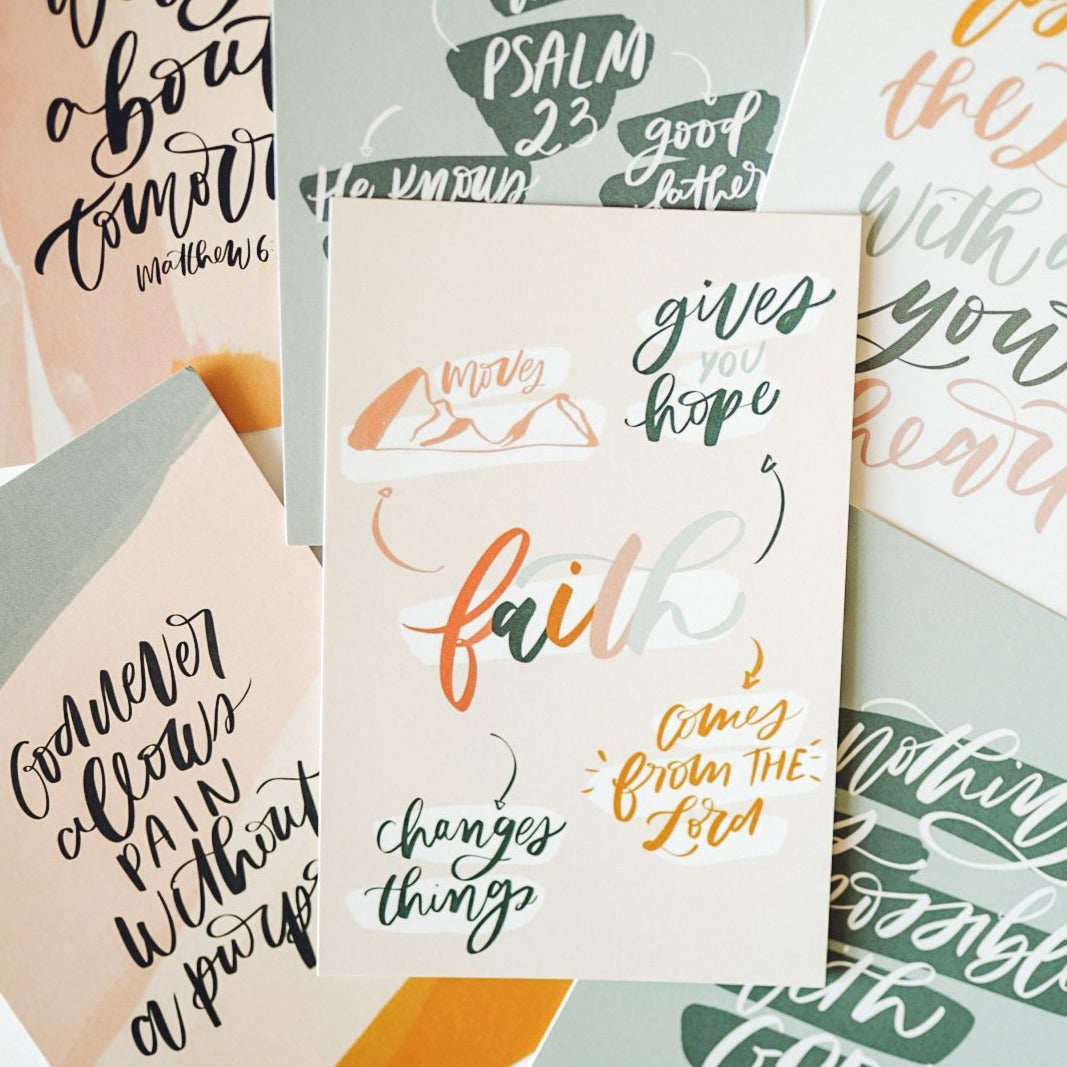 about
tomorr
Matthew 6:
PSALM
23
good
father
He knows
the
with a
you
heart
moves
gives
you
hope
faith
comes
from THE
Lord
changes
things
God never
allows
PAIN
without
a purpos
nothing
is
possible
with
God